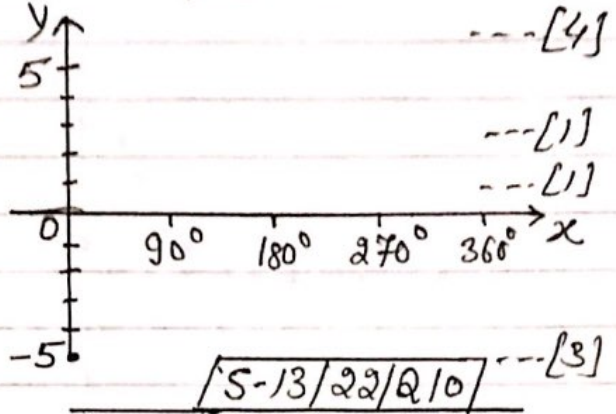 y
---[4]
5
---[1]
---[1]
0 90° 180° 270° 360° x
-5
---[3]
/S-13/22/Q10/